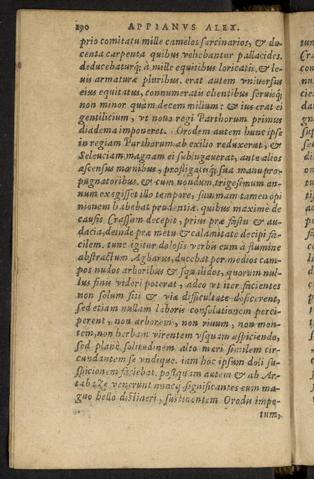 290 APPIANVS ALEX.
prio comitatu mille camelos sarcinarios, & du-
centa carpenta quibus vehebantur pallacides.
deducebaturq; à mille equitibus loricatis, & le-
uis armaturæ pluribus. erat autem vniuersus
eius equitatus, connumeratis clientibus seruisq;
non minor quàm decem milium: & ius erat ei
gentilicium, vt nouo regi Parthorum primus
diadema imponeret. Orodem autem hunc ipse
in regiam Parthorum ab exilio reduxerat, &
Seleuciam magnam ei subiugauerat, ante alios
ascensus mœnibus, profligatisq; sua manu pro-
pugnatoribus. & cum nondum trigesimum an-
num exegisset illo tempore, summam tamen opi-
nionem habebat prudentiæ. quibus maximè de
causis Crassum decepit, prius præ fastu & au-
dacia, deinde præ metu & calamitate decipi fa-
cilem. tunc igitur dolosis verbis eum à flumine
abstractum Agbarus, ducebat per medios cam-
pos nudos arboribus & squalidos, quorum nul-
lus finis videri poterat, adeo vt iter facientes
non solum siti & viæ difficultate deficerent,
sed etiam nullam laboris consolationem perci-
perent, non arborem, non riuum, non mon-
tem, non herbam virentem vsquam aspiciendo,
sed planè solitudinem alto mari similem cir-
cundantem se vndique. iam hoc ipsum doli su-
spicionem faciebat. postquam autem & ab Ar-
tabaze venerunt nuncij significantes eum ma-
gno bello distineri, sustinentem Orodis impe-
tum,